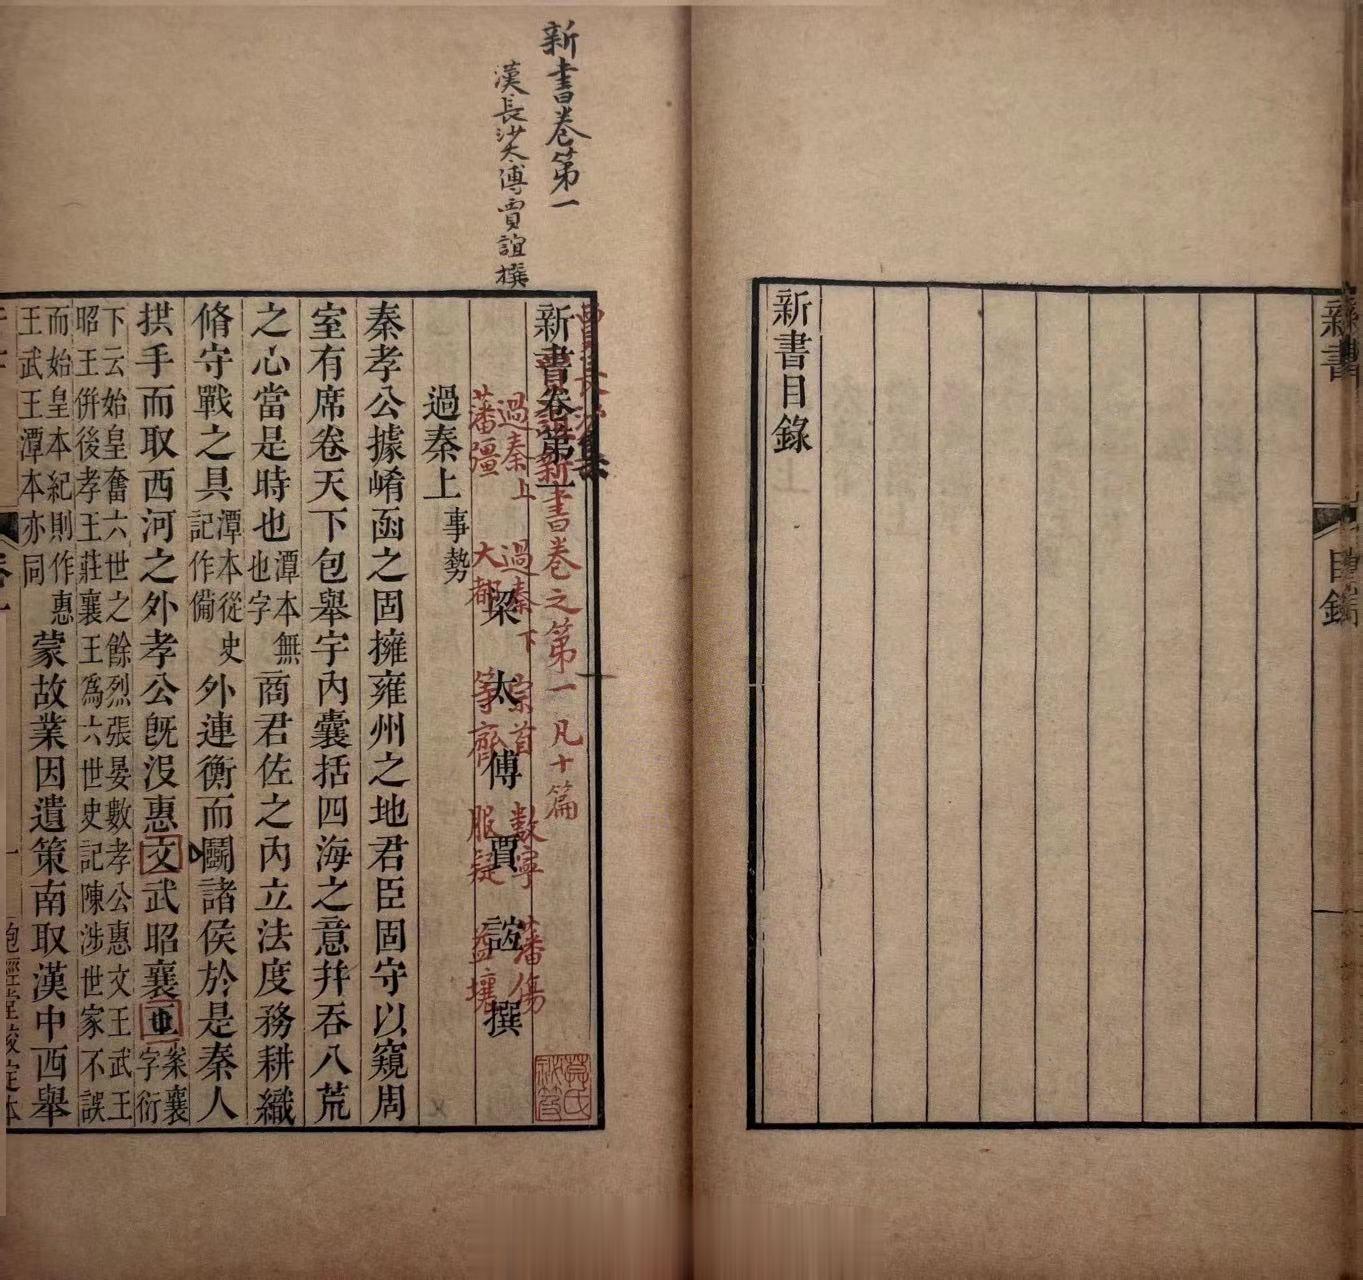 新書
目錄
新書目錄
新書卷第一
漢長沙太傅賈誼撰
新書卷第一
新書卷之第一凡十篇
梁太傅賈誼撰
過秦上 過秦下 宗首 數寧 藩傷
藩彊 大都 等齊 服疑 益壤
過秦上事勢
秦孝公據崤函之固擁雍州之地君臣固守以窺周
室有席卷天下包舉宇內囊括四海之意并吞八荒
之心當是時也潭本無也字商君佐之內立法度務耕織
脩守戰之具潭本從史記作備外連衡而鬭諸侯於是秦人
拱手而取西河之外孝公旣沒惠文武昭襄王案襄字衍
下云始皇奮六世之餘烈張晏數孝公惠文王武王
昭王併後孝王莊襄王爲六世史記陳涉世家不誤
而始皇本紀則作惠
王武王潭本亦同蒙故業因遺策南取漢中西舉
抱經堂校定本